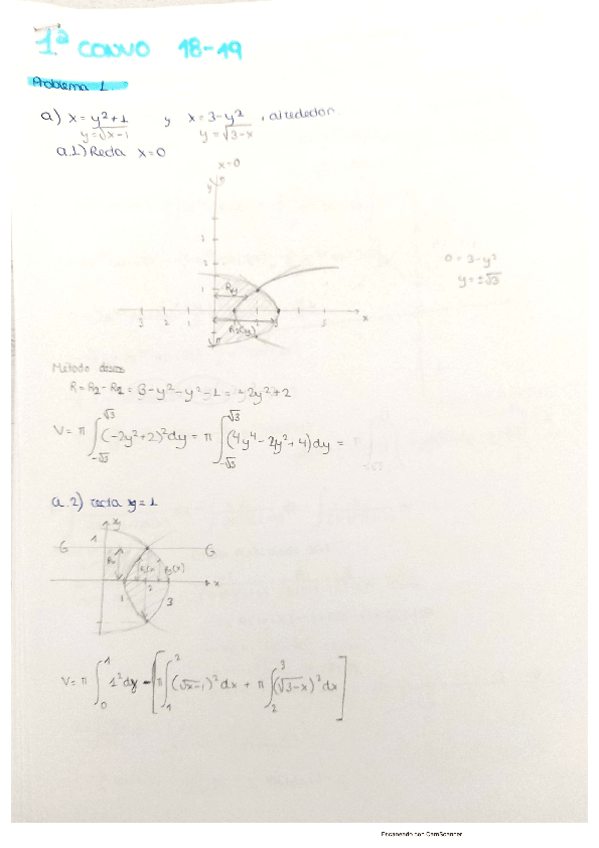 1ª CONVO 18-19
Problema 1.
a) x = y²+1 y x = 3-y², alrededor
y = √x-1 y = √3-x
a.1) Recta x=0
x=0
y
3
2
1
0 = 3-y²
y = ±√3
3 2 1 5 x
Método discos
R = R2 - R1 = 3-y²-y²-1 = -2y²+2
V = π ∫_{-√3}^{√3} (-2y²+2)² dy = π ∫_{-√3}^{√3} (4y⁴-2y²+4) dy =
a.2) recta y=1
y
1
G G
1 2 3 x
V = π ∫_0^1 1² dy - [π ∫_1^2 (√x-1)² dx + π ∫_2^3 (√3-x)² dx]
Escaneado con CamScanner